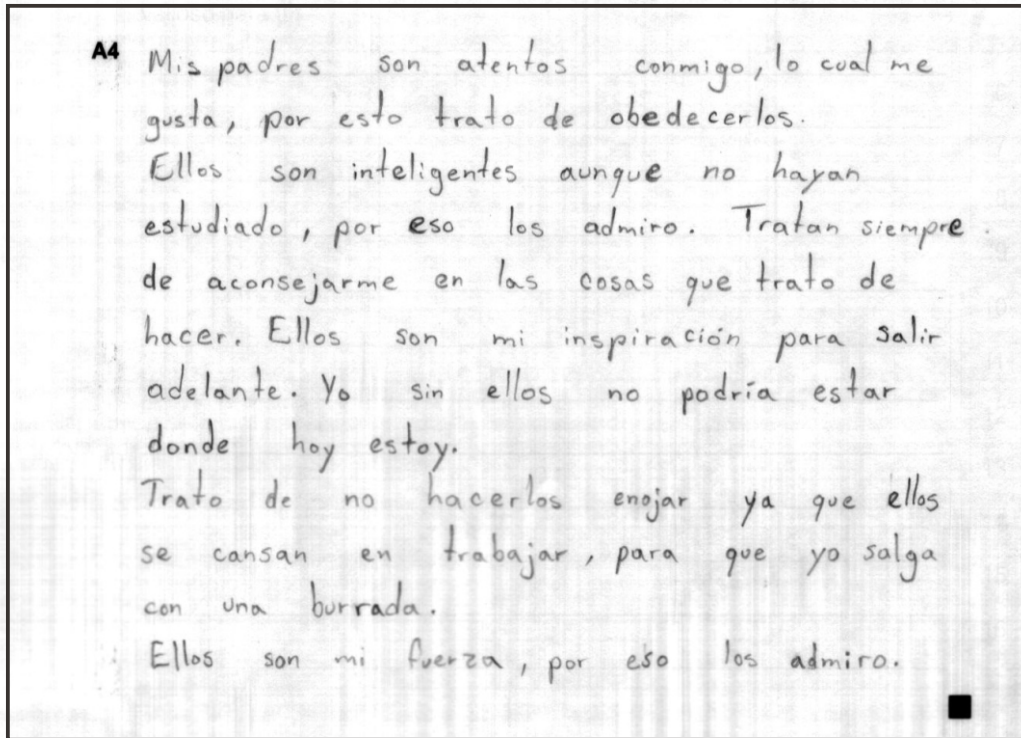 A4 Mis padres son atentos conmigo, lo cual me
gusta, por esto trato de obedecerlos.
Ellos son inteligentes aunque no hayan
estudiado, por eso los admiro. Tratan siempre
de aconsejarme en las cosas que trato de
hacer. Ellos son mi inspiración para salir
adelante. Yo sin ellos no podría estar
donde hoy estoy.
Trato de no hacerlos enojar ya que ellos
se cansan en trabajar, para que yo salga
con una burrada.
Ellos son mi fuerza, por eso los admiro.